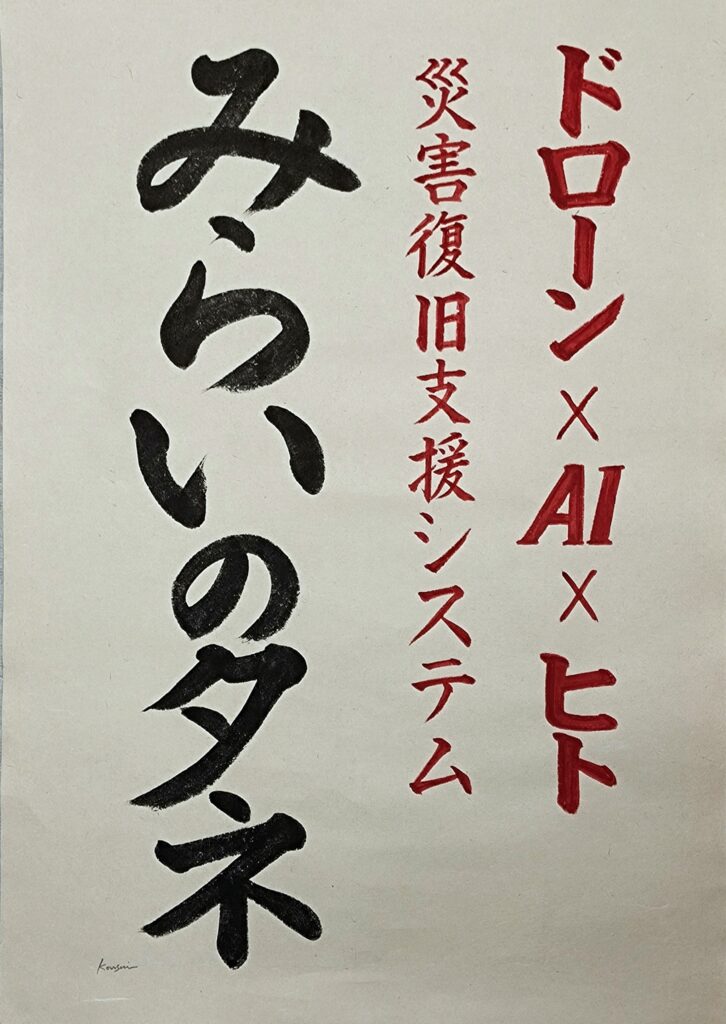 ドローン×AI×ヒト
災害復旧支援システム
みらいのタネ